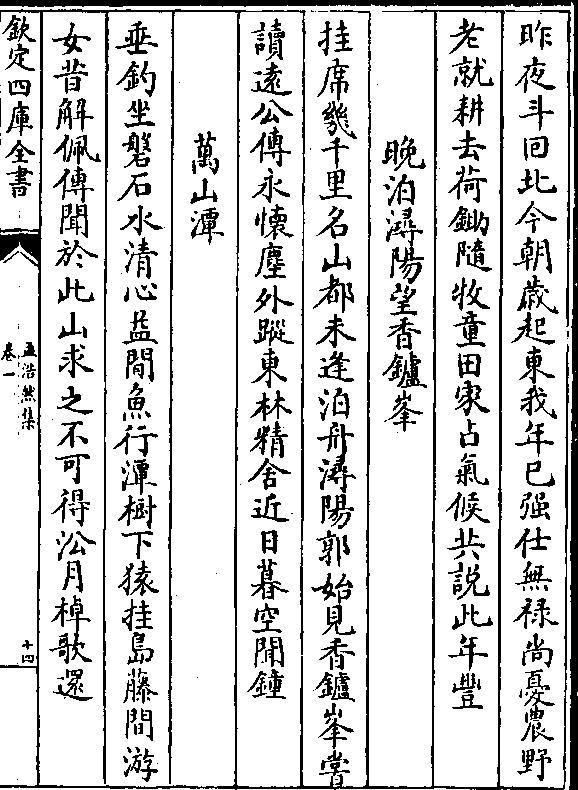 昨夜斗回北今朝歳起東我年已强仕無禄尚憂農野
老就耕去荷鋤隨牧童田家占氣候共説此年豐
晩泊潯陽望香鑪峯
挂席幾千里名山都未逢泊舟潯陽郭始見香鑪峯嘗
讀遠公傳永懷塵外蹤東林精舍近日暮空聞鐘
萬山潭
垂釣坐磐石水清心益閒魚行潭樹下猿挂島藤間游
女昔解佩傳聞於此山求之不可得沿月棹歌還
欽定四庫全書
孟浩然集
卷一
十四